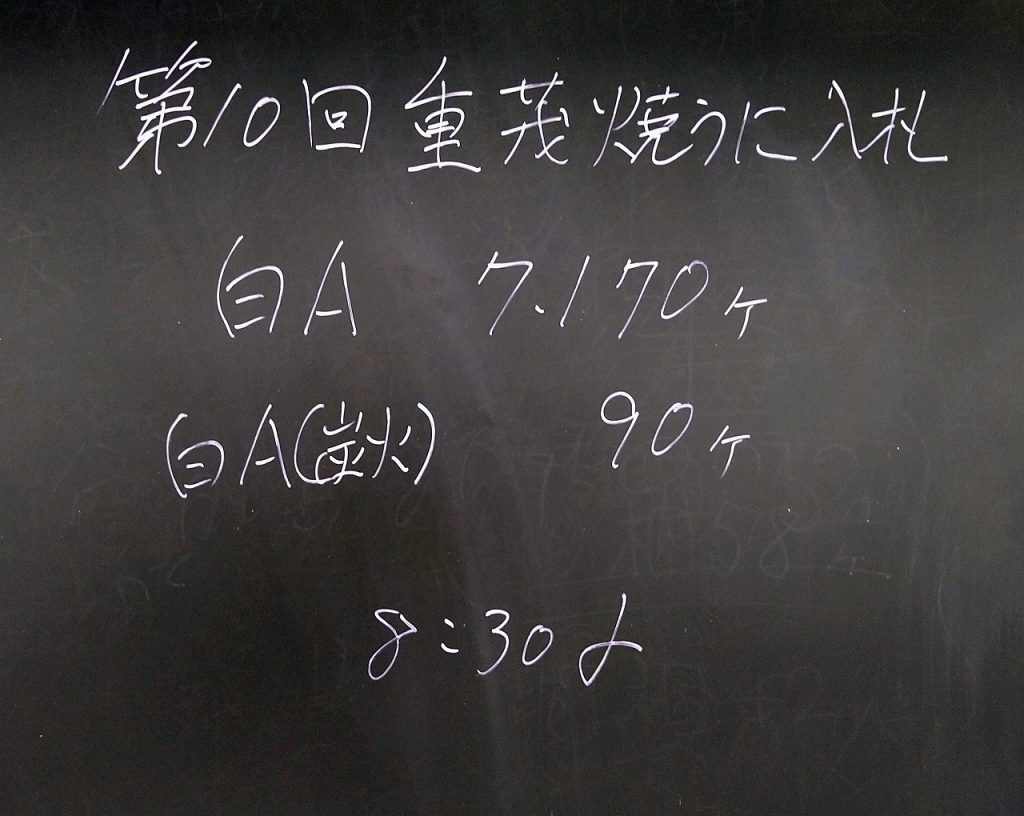 第10回重茂焼うに入札
白A 7.170ヶ
白A(炭火) 90ヶ
8:30よ